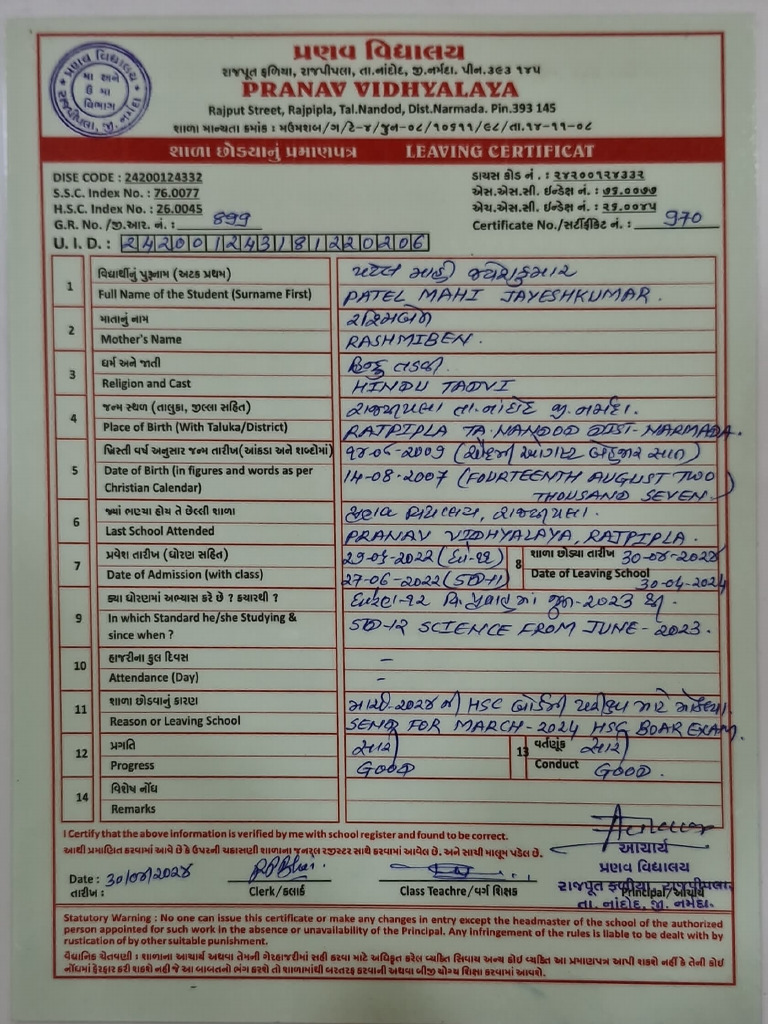 પ્રણવ વિદ્યાલય
રાજપૂત ફળિયા, રાજપીપલા, તા.નાંદોદ, જી.નર્મદા. પીન.૩૯૩ ૧૪૫
PRANAV VIDHYALAYA
Rajput Street, Rajpipla, Tal.Nandod, Dist.Narmada. Pin.393 145
શાળા માન્યતા ક્રમાંક : મઉમશબ/ગ/ટે-૪/જુન-૦૮/૧૦૬૧૧/૯૮/તા.૧૪-૧૧-૦૮
પ્રણવ વિદ્યાલય
મા અને
ઉ મા
વિભાગ
રાજપીપલા, જી. નર્મદા
શાળા છોડ્યાનું પ્રમાણપત્ર LEAVING CERTIFICAT
DISE CODE : 24200124332 ડાયસ કોડ નં . : ૨૪૨૦૦૧૨૪૩૩૨
S.S.C. Index No. : 76.0077 એસ.એસ.સી. ઈન્ડેક્ષ નં. : ૭૬.૦૦૭૭
H.S.C. Index No. : 26.0045 એચ.એસ.સી. ઈન્ડેક્ષ નં. : ૨૬.૦૦૪૫
G.R. No. /જી.આર. નં. : 899 Certificate No./સર્ટીફિકેટ નં. : 970
U. I. D. : 242001243181220206
1 વિદ્યાર્થીનું પુરૂનામ (અટક પ્રથમ) પટેલ માહી જયેશકુમાર
Full Name of the Student (Surname First) PATEL MAHI JAYESHKUMAR.
2 માતાનું નામ રશ્મિબેન
Mother's Name RASHMIBEN.
3 ધર્મ અને જાતી હિન્દુ તડવી.
Religion and Cast HINDU TADVI
4 જન્મ સ્થળ (તાલુકા, જીલ્લા સહિત) રાજપીપલા તા.નાંદોદ જી.નર્મદા.
Place of Birth (With Taluka/District) RAJPIPLA TA-NANDOD DIST-NARMADA.
5 ખ્રિસ્તી વર્ષ અનુસાર જન્મ તારીખ(આંકડા અને શબ્દોમાં) (ચૌદમી ઓગષ્ટ બેહજાર સાત)
Date of Birth (in figures and words as per 14-08-2007 (FOURTEENTH AUGUST TWO
Christian Calendar) THOUSAND SEVEN)
6 જ્યાં ભણ્યા હોય તે છેલ્લી શાળા પ્રણવ વિદ્યાલય, રાજપીપલા.
Last School Attended PRANAV VIDHYALAYA, RAJPIPLA.
7 પ્રવેશ તારીખ (ધોરણ સહિત) 8 શાળા છોડ્યા તારીખ
Date of Admission (with class) 27-06-2022 (STD-11) Date of Leaving School 30-04-2024
9 ક્યા ધોરણમાં અભ્યાસ કરે છે ? ક્યારથી ? ધોરણ-૧૨ વિ.પ્રવાહમાં જુન-2023 થી.
In which Standard he/she Studying & STD-12 SCIENCE FROM JUNE-2023.
since when ?
10 હાજરીના કુલ દિવસ -
Attendance (Day) -
11 શાળા છોડવાનું કારણ માર્ચ-૨૦૨૪ ની HSC બોર્ડની પરીક્ષા માટે મોકલ્યા.
Reason or Leaving School SEND FOR MARCH-2024 HSC BOAR EXAM.
12 પ્રગતિ સારી 13 વર્તણૂંક સારી
Progress GOOD Conduct GOOD.
14 વિશેષ નોંધ
Remarks
I Certify that the above information is verified by me with school register and found to be correct.
આથી પ્રમાણિત કરવામાં આવે છે કે ઉપરની ચકાસણી શાળાના જનરલ રજીસ્ટર સાથે કરવામાં આવેલ છે. અને સાચી માલૂમ પડેલ છે.
આચાર્ય
પ્રણવ વિદ્યાલય
રાજપૂત ફળીયા, રાજપીપલા
તા. નાંદોદ, જી. નર્મદા.
Date : 30/04/2024
તારીખ : Clerk/ક્લાર્ક Class Teachre/વર્ગ શિક્ષક Principal/આચાર્ય
Statutory Warning : No one can issue this certificate or make any changes in entry except the headmaster of the school of the authorized
person appointed for such work in the absence or unavailability of the Principal. Any infringement of the rules is liable to be dealt with by
rustication of by other suitable punishment.
વૈધાનિક ચેતવણી : શાળાના આચાર્ય અથવા તેમની ગેરહાજરીમાં સહી કરવા માટે અધિકૃત કરેલ વ્યક્તિ સિવાય અન્ય કોઈ વ્યક્તિ આ પ્રમાણપત્ર આપી શકશે નહીં કે તેની કોઈ
નોંધમાં ફેરફાર કરી શકશે નહી જે આ બાબતનો ભંગ કરશે તો શાળામાંથી બરતરફ કરવાની અથવા બીજી યોગ્ય શિક્ષા કરવામાં આવશે.